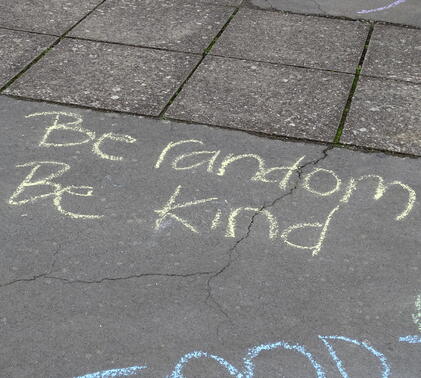 Be random
Be kind